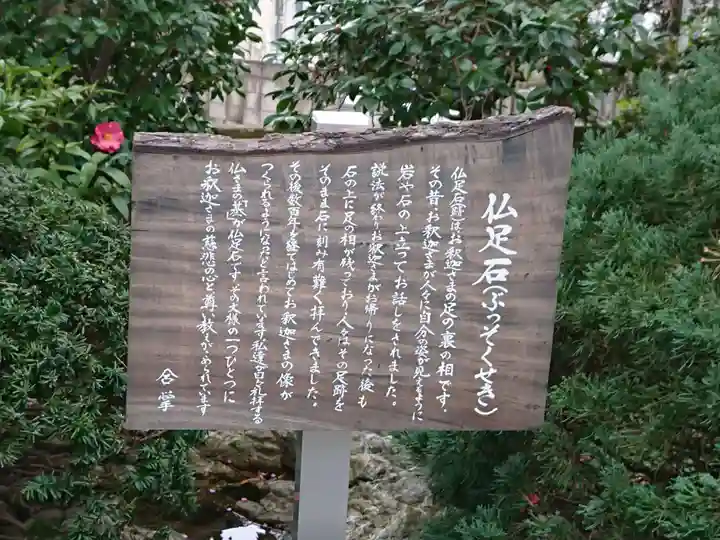 仏足石(ぶっそくせき)
仏足石(跡)はお釈迦さまの足の裏の相です。
その昔、お釈迦さまが人々に自分の姿が見えるように
岩や石の上に立ってお話しをされました。
説法が終りお釈迦さまがお帰りになった後も
石の上に足の相が残っており、人々はその足跡を
そのまま石に刻み有難く拝んできました。
その後数百年を経てはじめてお釈迦さまの像が
つくられるようになったと言われています。私達が日々礼拝する
仏さまの「基」が仏足石です。その文様の一つひとつに
お釈迦さまの慈悲の心と尊い教えがこめられています
合掌